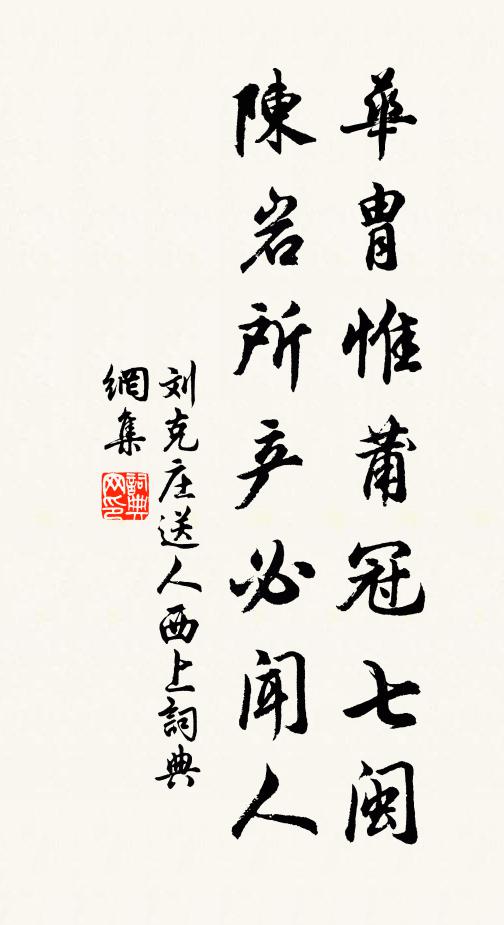 華胄惟莆冠七闽
陳岩所产必闻人
刘克庄送人西上詞典
網集
詞典网印